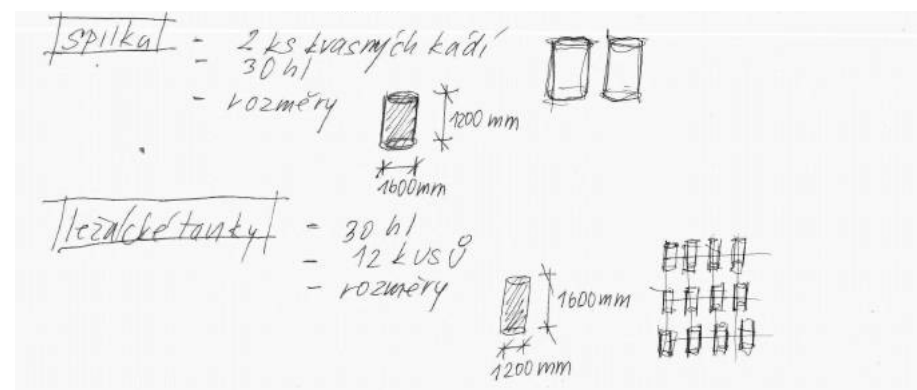 spilka
- 2 ks kvasných kádí
- 30 hl
- rozměry
1200 mm
1600mm
ležácké tanky
- 30 hl
- 12 kusů
- rozměry
1600mm
1200 mm